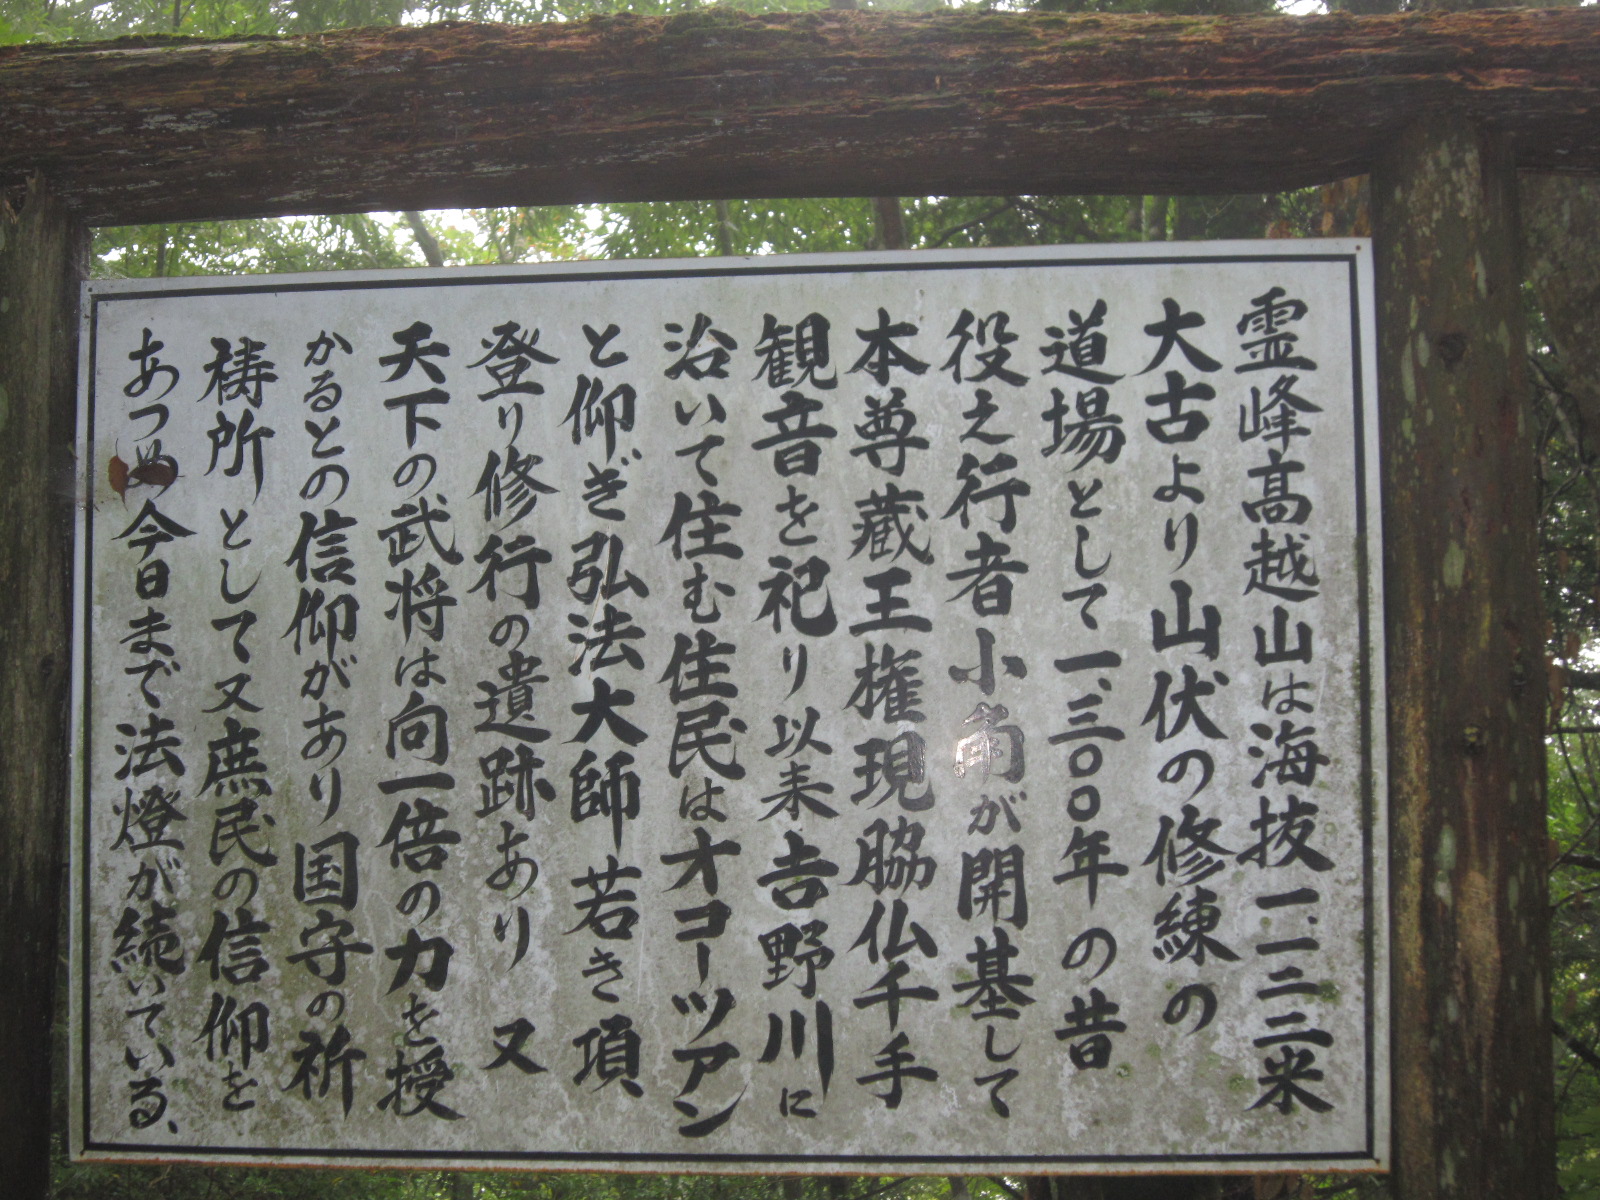 霊峰高越山は海抜一、一二二米
大古より山伏の修練の
道場として一、三〇〇年の昔
役之行者小角が開基して
本尊蔵王権現脇仏千手
観音を祀り以来吉野川に
沿いて住む住民はオコーツアン
と仰ぎ弘法大師若き頃
登り修行の遺跡あり又
天下の武将は向一倍の力を授
かるとの信仰があり国守の祈
祷所として又庶民の信仰を
あつめ今日まで法燈が続いている、